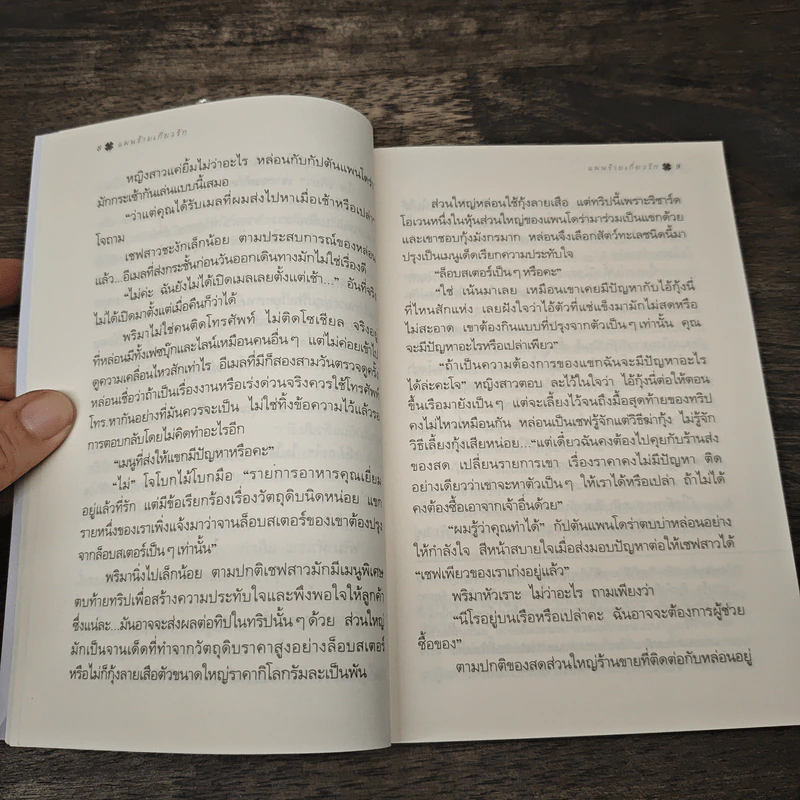 8 แผนร้ายเกี่ยวรัก
หญิงสาวแค่ยิ้มไม่ว่าอะไร หล่อนกับกัปตันแพนโดร่า
มักกระเซ้ากันเล่นแบบนี้เสมอ
“ว่าแต่คุณได้รับเมลที่ผมส่งไปหาเมื่อเช้าหรือเปล่า”
โจถาม
เชฟสาวชะงักเล็กน้อย ตามประสบการณ์ของหล่อน
แล้ว...อีเมลที่ส่งกระชั้นก่อนวันออกเดินทางมักไม่ใช่เรื่องดี
“ไม่ค่ะ ฉันยังไม่ได้เปิดเมลเลยตั้งแต่เช้า...” อันที่จริง
ไม่ได้เปิดมาตั้งแต่เมื่อคืนก็ว่าได้
พริมาไม่ใช่คนติดโทรศัพท์ ไม่ติดโซเชียล จริงอยู่
ที่หล่อนมีทั้งเฟซบุ๊กและไลน์เหมือนคนอื่นๆ แต่ไม่ค่อยเข้าไป
ดูความเคลื่อนไหวสักเท่าไร อีเมลที่มีก็สองสามวันตรวจดูครั้ง
หล่อนเชื่อว่าถ้าเป็นเรื่องงานหรือเร่งด่วนจริงควรใช้โทรศัพท์
โทร.หากันอย่างที่มันควรจะเป็น ไม่ใช่ทิ้งข้อความไว้แล้วรอ
การตอบกลับโดยไม่คิดทำอะไรอีก
“เมนูที่ส่งให้แขกมีปัญหาหรือคะ”
“ไม่” โจโบกไม้โบกมือ “รายการอาหารคุณเยี่ยม
อยู่แล้วที่รัก แต่มีข้อเรียกร้องเรื่องวัตถุดิบนิดหน่อย แขก
รายหนึ่งของเราเพิ่งแจ้งมาว่าจานล็อบสเตอร์ของเขาต้องปรุง
จากล็อบสเตอร์เป็นๆ เท่านั้น”
พริมานิ่งไปเล็กน้อย ตามปกติเชฟสาวมักมีเมนูพิเศษ
ตบท้ายทริปเพื่อสร้างความประทับใจและพึงพอใจให้ลูกค้า
ซึ่งแน่ละ...มันอาจจะส่งผลต่อทิปในทริปนั้นๆ ด้วย ส่วนใหญ่
มักเป็นจานเด็ดที่ทำจากวัตถุดิบราคาสูงอย่างล็อบสเตอร์
หรือไม่ก็กุ้งลายเสือตัวขนาดใหญ่ราคากิโลกรัมละเป็นพัน
แผนร้ายเกี่ยวรัก 9
ส่วนใหญ่หล่อนใช้กุ้งลายเสือ แต่ทริปนี้เพราะริชาร์ด
โอเวนหนึ่งในหุ้นส่วนใหญ่ของแพนโดร่ามาร่วมเป็นแขกด้วย
และเขาชอบกุ้งมังกรมาก หล่อนจึงเลือกสัตว์ทะเลชนิดนี้มา
ปรุงเป็นเมนูเด็ดเรียกความประทับใจ
“ล็อบสเตอร์เป็นๆ หรือคะ”
“ใช่ เน้นมาเลย เหมือนเขาเคยมีปัญหากับไอ้กุ้งนี่
ที่ไหนสักแห่ง เลยฝังใจว่าไอ้ตัวที่แช่แข็งมามักไม่สดหรือ
ไม่สะอาด เขาต้องกินแบบที่ปรุงจากตัวเป็นๆ เท่านั้น คุณ
จะมีปัญหาอะไรหรือเปล่าเพียว”
“ถ้าเป็นความต้องการของแขกฉันจะมีปัญหาอะไร
ได้ล่ะคะโจ” หญิงสาวตอบ ละไว้ในใจว่า ไอ้กุ้งนี่ต่อให้ตอน
ขึ้นเรือมายังเป็นๆ แต่จะเลี้ยงไว้จนถึงมื้อสุดท้ายของทริป
คงไม่ไหวเหมือนกัน หล่อนเป็นเชฟรู้จักแต่วิธีฆ่ากุ้ง ไม่รู้จัก
วิธีเลี้ยงกุ้งเสียหน่อย...“แต่เดี๋ยวฉันคงต้องไปคุยกับร้านส่ง
ของสด เปลี่ยนรายการเขา เรื่องราคาคงไม่มีปัญหา ติด
อย่างเดียวว่าเขาจะหาตัวเป็นๆ ให้เราได้หรือเปล่า ถ้าไม่ได้
คงต้องซื้อเอาจากเจ้าอื่นด้วย”
“ผมรู้ว่าคุณทำได้” กัปตันแพนโดร่าตบบ่าหล่อนอย่าง
ให้กำลังใจ สีหน้าสบายใจเมื่อส่งมอบปัญหาต่อให้เชฟสาวได้
“เชฟเพียวของเราเก่งอยู่แล้ว”
พริมาหัวเราะ ไม่ว่าอะไร ถามเพียงว่า
“นีโรอยู่บนเรือหรือเปล่าคะ ฉันอาจจะต้องการผู้ช่วย
ซื้อของ”
ตามปกติของสดส่วนใหญ่ร้านขายที่ติดต่อกับหล่อนอยู่